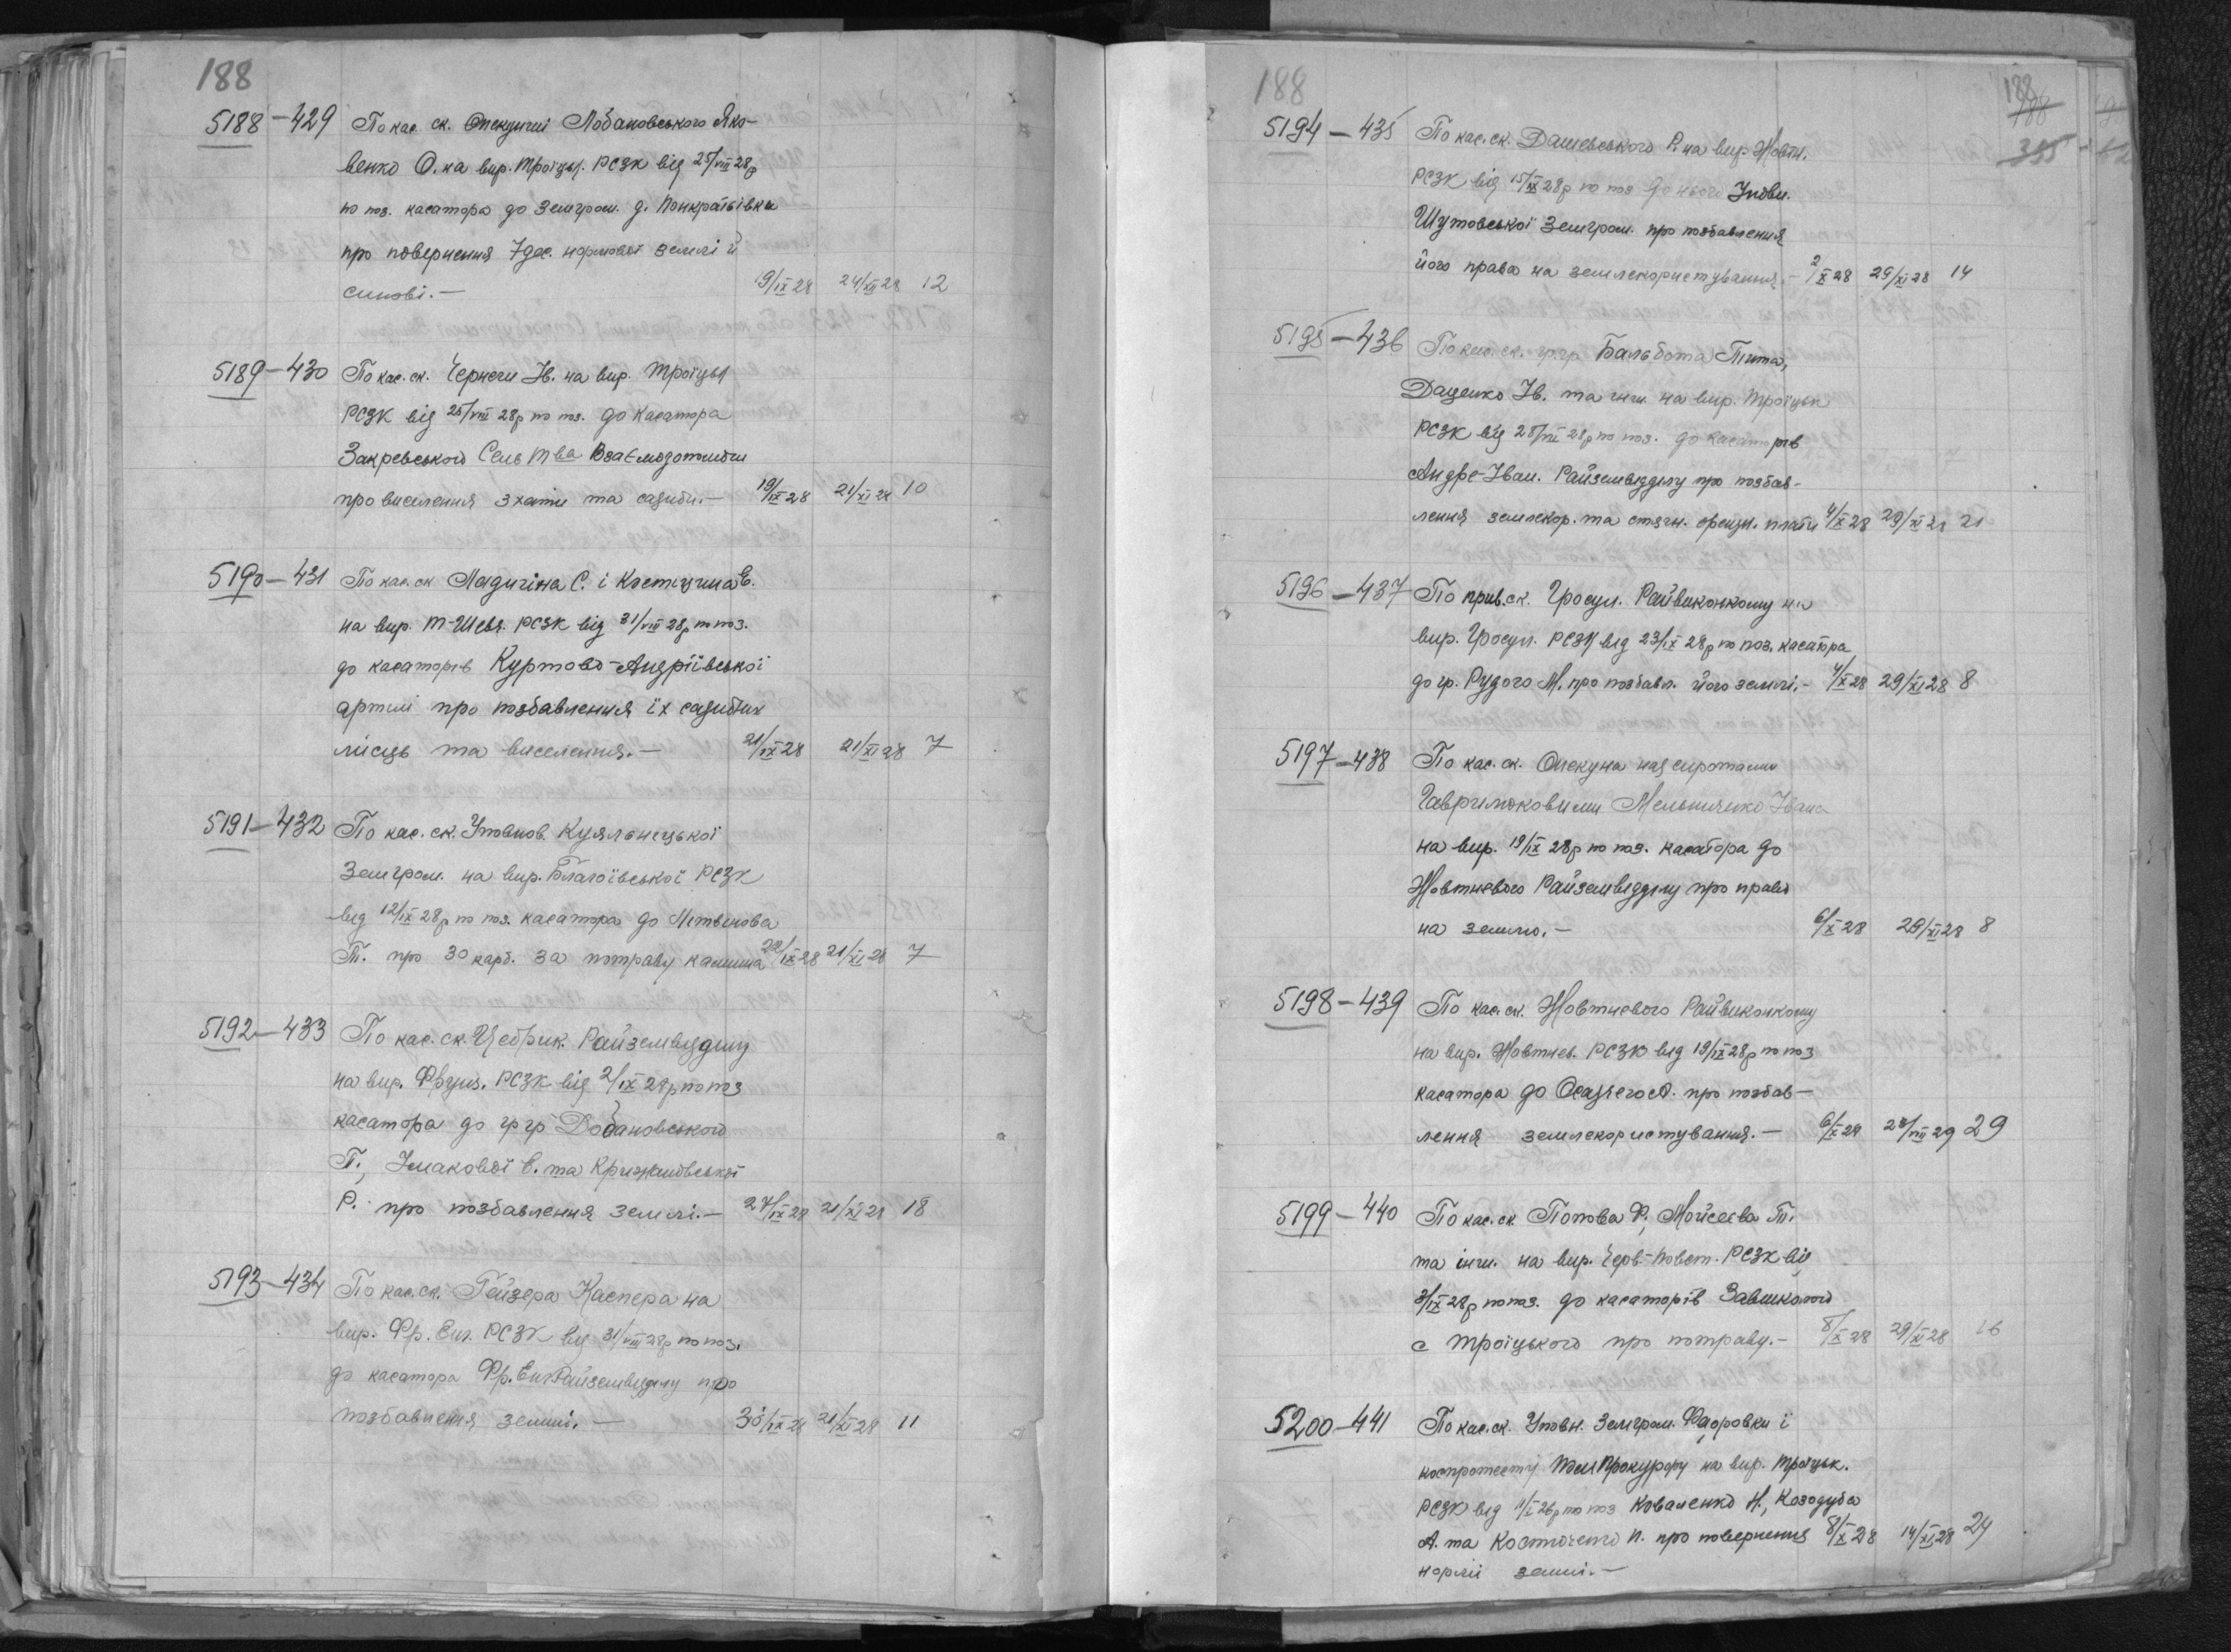 188
5188-429 По кас. ск. Опекунші Лобановського Яко-
венко О. на вир. Троїцьк. РСЗК від 25/VIII 28р
по поз. касатора до Земгром. д. Понкратівки
про повернення 7 дес. нормової землі й
синові.- 19/IX 28 24/XII 28 12
5189-430 По кас. ск. Чернеги Ів. на вир. Троїцьк
РСЗК від 25/VIII 28р по поз. до касатора
Закревського Сель Тва Взаємодопомоги
про виселення з хати та садиби.- 19/IX 28 21/XI 28 10
5190-431 По кас. ск С. і Костіцина Є.
на вир. Т-Шевч. РСЗК від 31/VIII 28р по поз.
до касаторів Куртово-Андріївської
артілі про позбавлення їх садибних
місць та виселення.- 21/IX 28 21/XI 28 7
5191-432 По кас. ск. Уповнов. Куяльнецької
Земгром. на вир. Благоївської РСЗК
від 12/IX 28р по поз. касатора до Мітвінова
Т. про 30 карб. за потраву камиша 22/IX 28 21/XI 28 7
5192-433 По кас. ск. Цебрик. Райземвідділу
на вир. РСЗК від 2/IX 28р по поз
касатора до гр гр Добановського
П., Імакової Є. та Крижановської
Р. про позбавлення землі.- 27/IX 28 21/XI 28 18
5193-434 По кас. ск. Гейзера Каспера на
вир. Фр. Енг. РСЗК від 31/VIII 28р по поз.
до касатора Фр. Енг Райземвідділу про
позбавлення землі.- 30/IX 28 21/XI 28 11
188
188
188
355
5194-435 По кас. ск. Дашевського Р. на вир. Жовтн.
РСЗК від 15/IX 28р по поз до нього Уповн.
Шутовської Земгром. про позбавлення
його права на землекористування.- 2/X 28 29/XI 28 14
5195-436 По кас. ск. гр.гр. Бальбота Тита,
Даценко Ів. та інш. на вир. Троїцьк
РСЗК від 28/VIII 28р по поз. до касаторів
Андре-Іван. Райземвідділу про позбав-
лення землекор. та стягн. орендн. плати 4/X 28 29/XI 28 21
5196-437 По прив. ск. Гросул. Райвиконкому на
вир. Гросул. РСЗК від 23/IX 28р по поз. касатора
до гр. Рудого М. про позбавл. його землі.- 4/X 28 29/XI 28 8
5197-438 По кас. ск. Опекуна над сиротами
Гаврилюковими Мельниченко Івана
на вир. 19/IX 28р по поз. касатора до
Жовтневого Райземвідділу про право
на землю.- 6/X 28 29/XI 28 8
5198-439 По кас. ск. Жовтневого Райвиконкому
на вир. Жовтнев. РСЗК від 19/IX 28р по поз
касатора до Осадчего О. про позбав-
лення землекористування.- 6/X 28 28/VIII 29 29
5199-440 По кас. ск. Попова Ф., Мойсеєва Т.
та інш. на вир. Черв.-Повст. РСЗК від
3/IX 28р по поз. до касаторів Завшколою
с Троїцького про потраву.- 8/X 28 29/XI 28 16
5200-441 По кас. ск. Уповн. Земгром. Федоровки і
коспротесту Прокурору на вир. Троїцьк.
РСЗК від по поз Коваленко Н., Козодуба
А. та П. про повернення 8/X 28 14/XI 28 24
норми землі.-